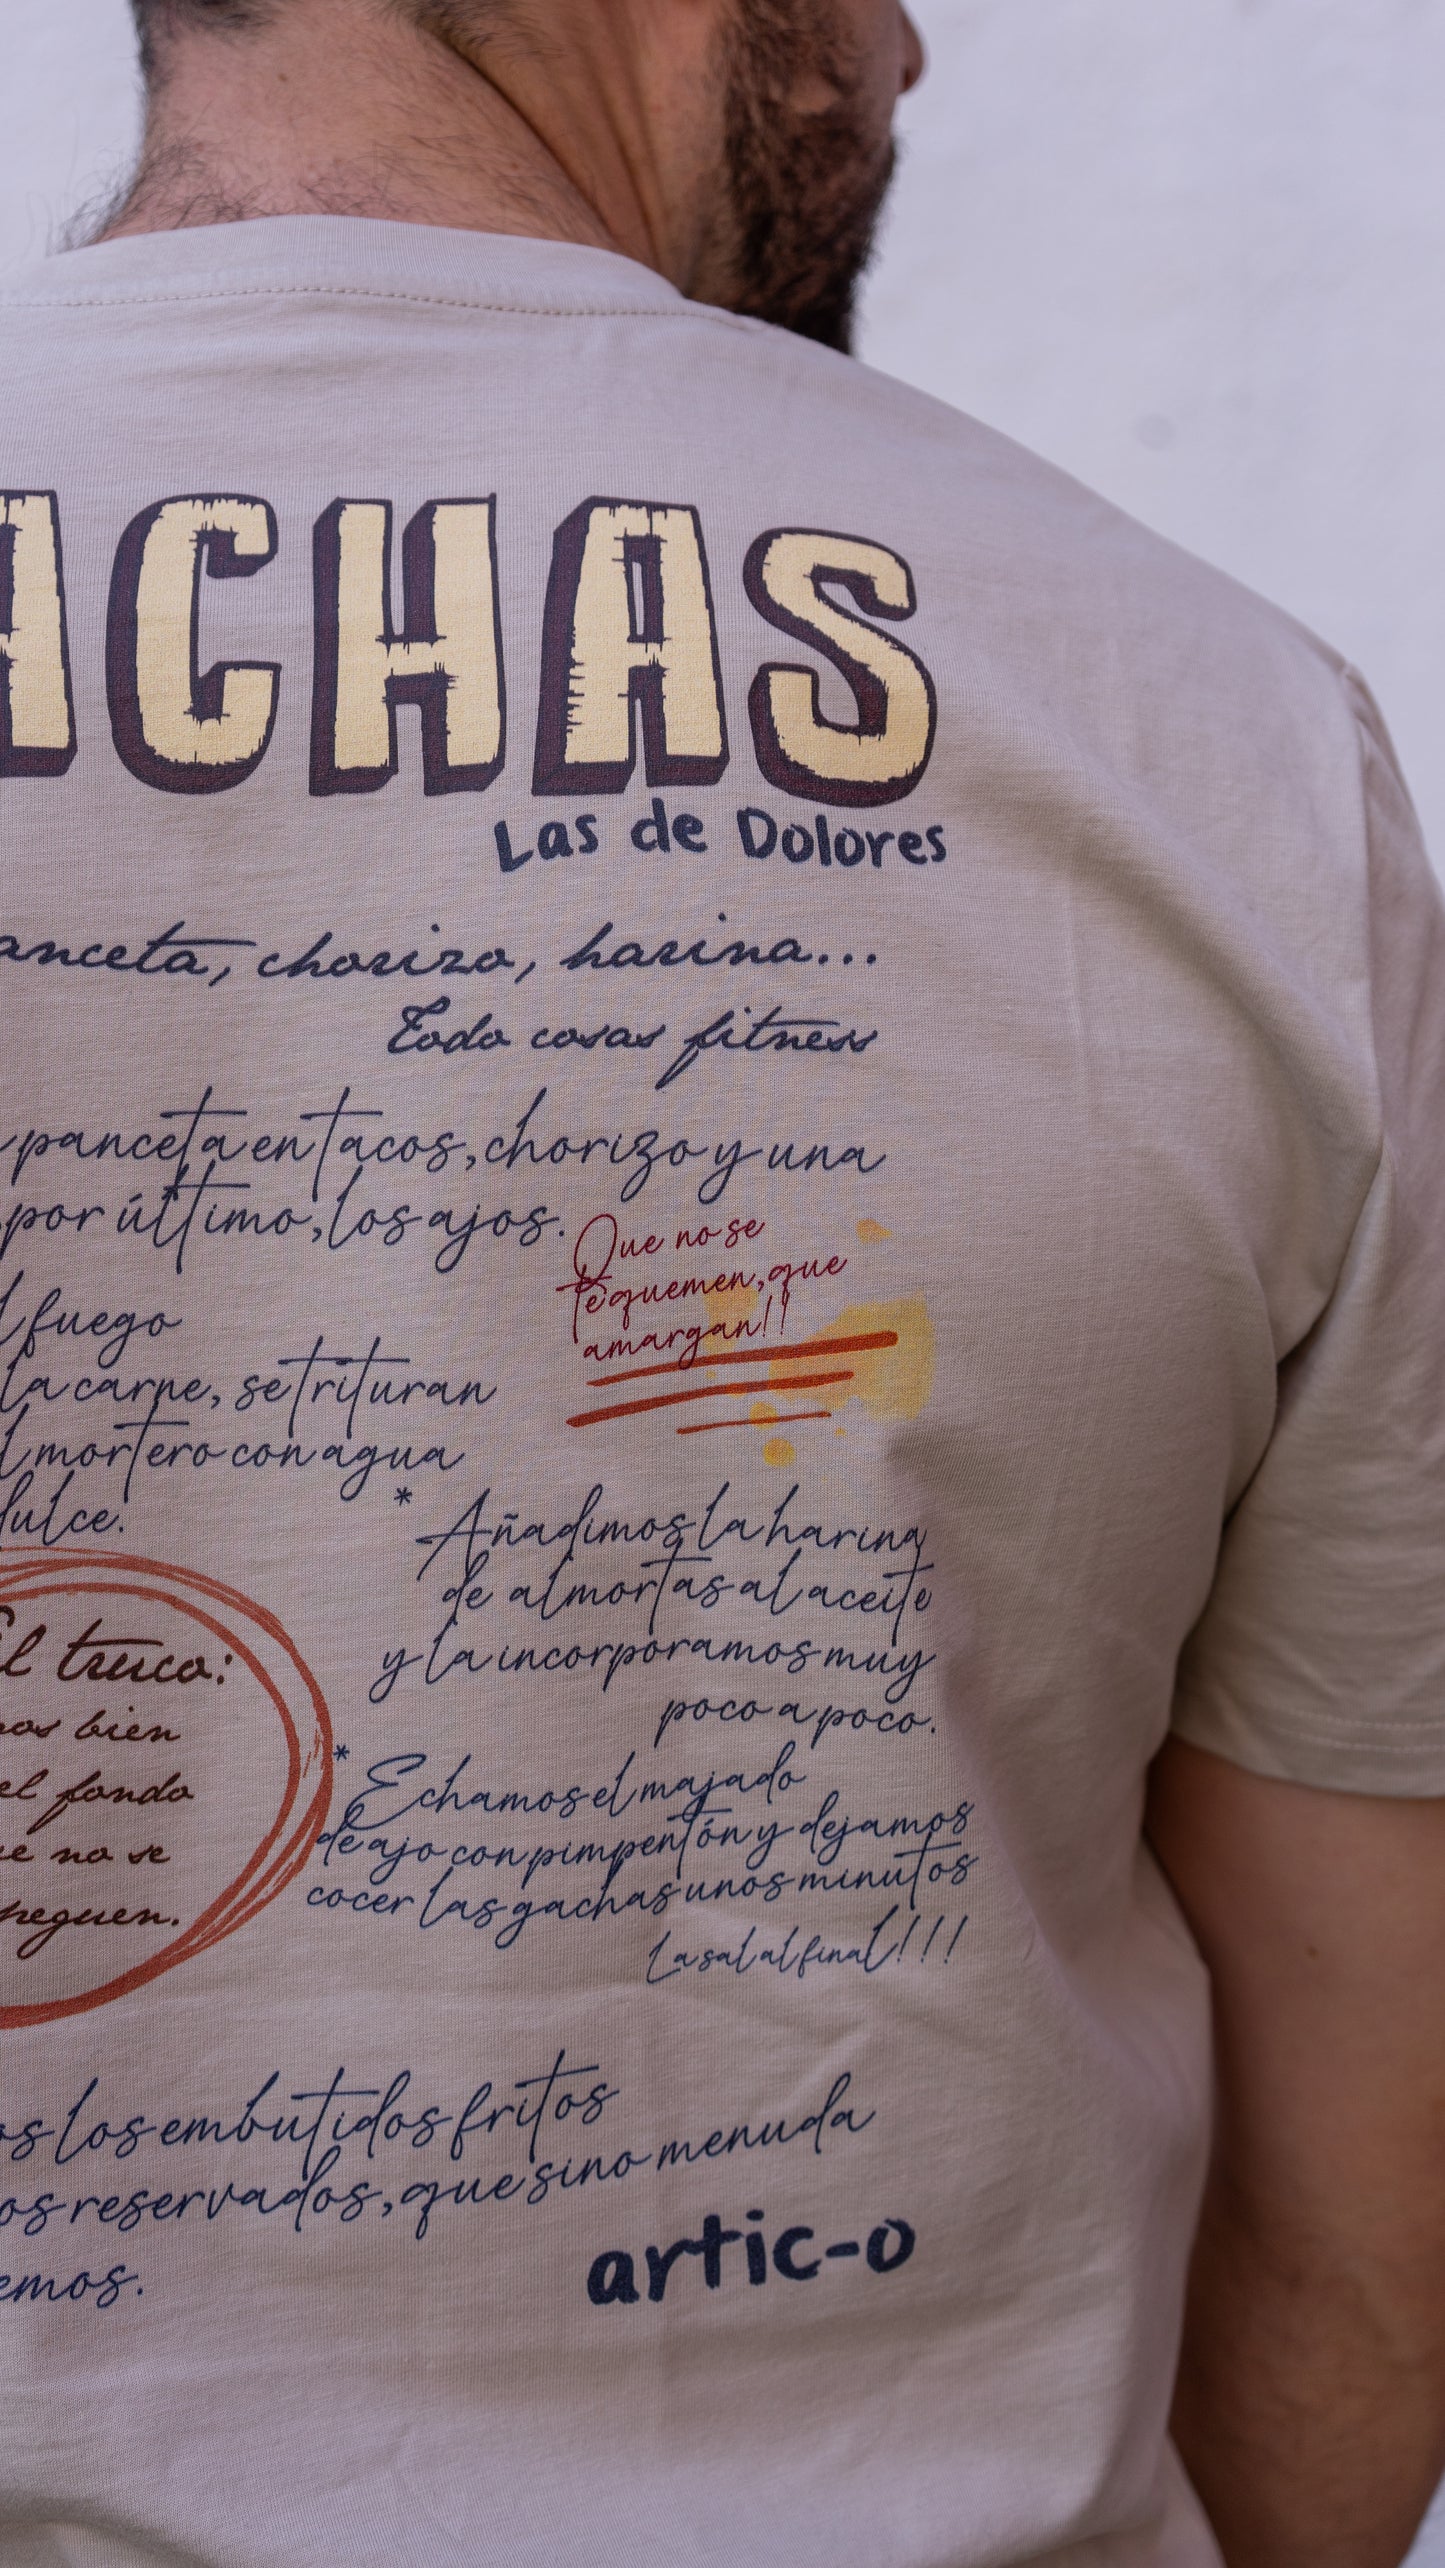 ACHAS
Las de Dolores
anceta, chorizo, harina...
Todo cosas fitness
panceta en tacos, chorizo y una
por último, los ajos.
Que no se
te quemen, que
amargan!!
l fuego
la carne, se trituran
l mortero con agua
dulce.
* Añadimos la harina
de almortas al aceite
y la incorporamos muy
poco a poco.
El truco:
mos bien
el fondo
ue no se
peguen.
* Echamos el majado
de ajo con pimpentón y dejamos
cocer las gachas unos minutos
La sal al final!!!
os los embutidos fritos
os reservados, que sino menuda
emos.
artic-o